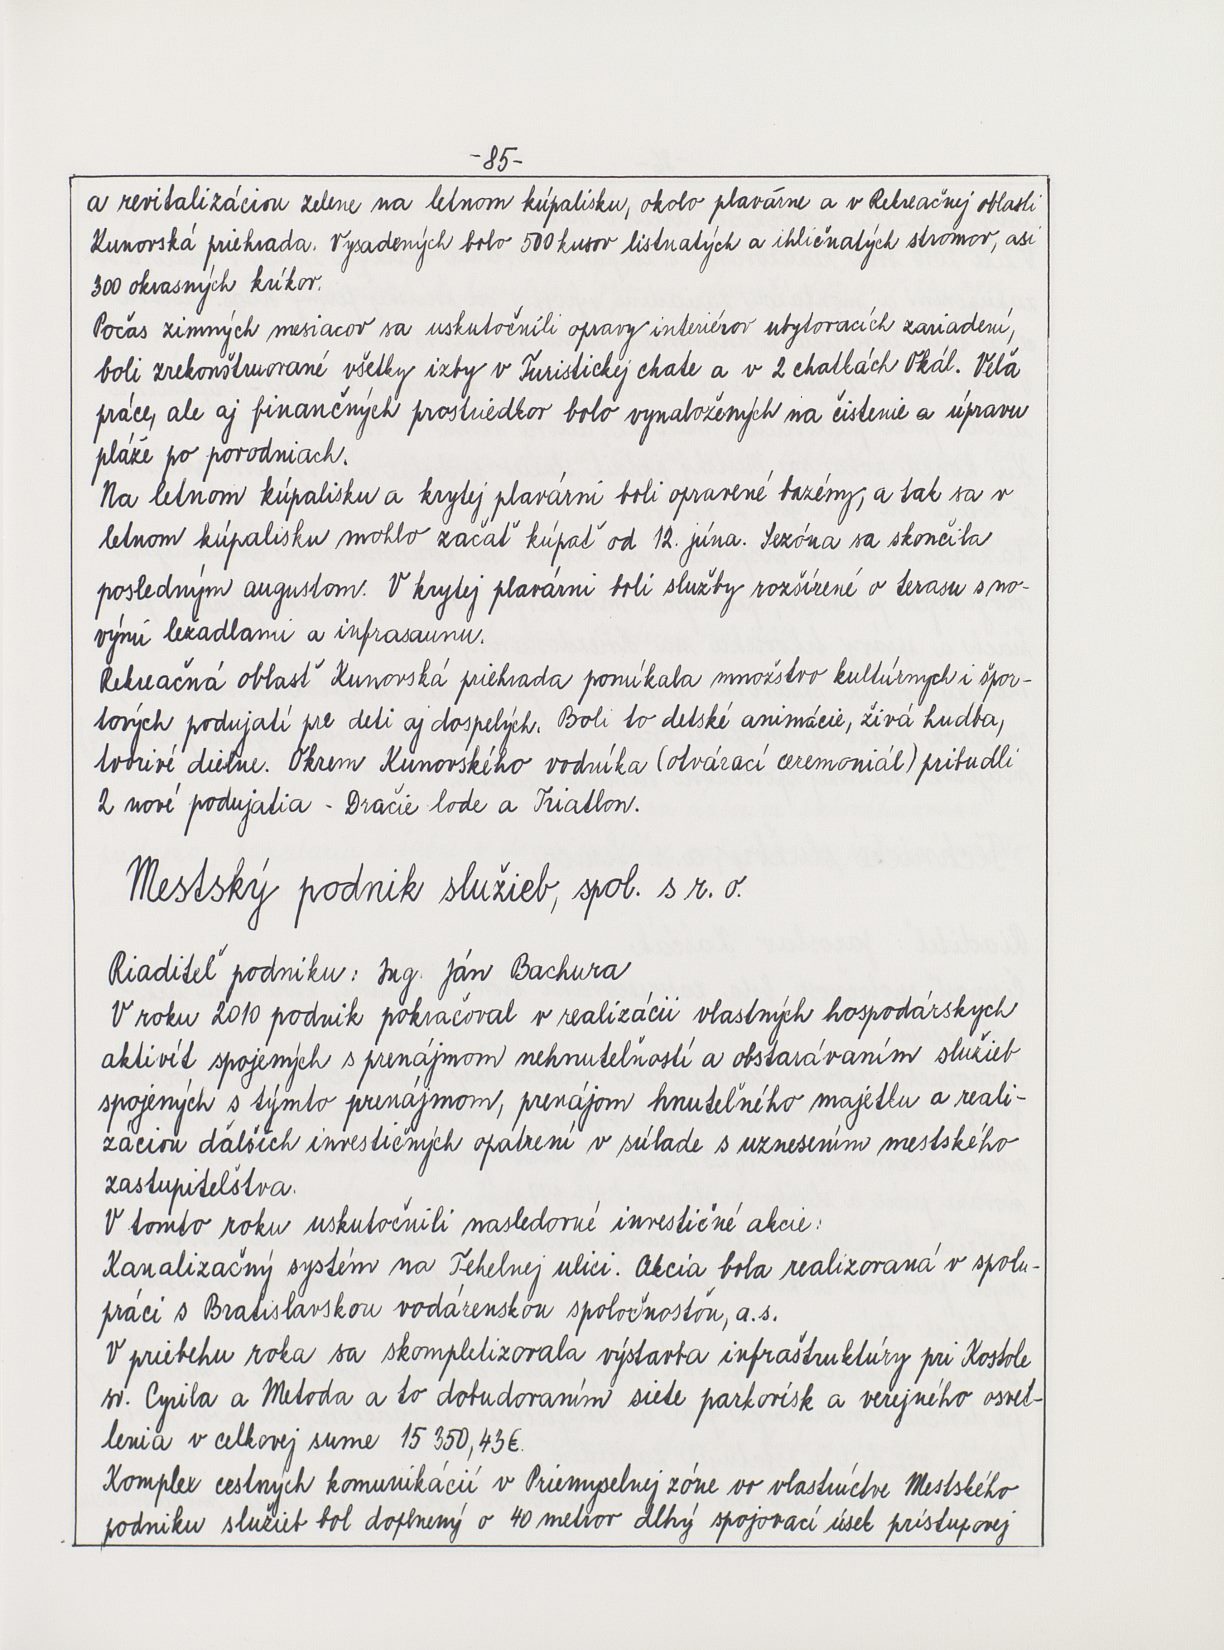 -85-
a revitalizáciou zelene na letnom kúpalisku, okolo plavárne a v Rekreačnej oblasti
Kunovská priehrada. Vysadených bolo 500 kusov listnatých a ihličnatých stromov, asi
300 okrasných kríkov.
Počas zimných mesiacov sa uskutočnili opravy interiérov ubytovacích zariadení,
boli zrekonštruované všetky izby v Turistickej chate a v 2 chatkách Okál. Veľa
práce, ale aj finančných prostriedkov bolo vynaložených na čistenie a úpravu
pláže po povodniach.
Na letnom kúpalisku a krytej plavárni boli opravené bazény, a tak sa v
letnom kúpalisku mohlo začať kúpať od 12. júna. Sezóna sa skončila
posledným augustom. V krytej plavárni boli služby rozšírené o terasu s no-
vými ležadlami a infrasaunu.
Rekreačná oblasť Kunovská priehrada ponúkala množstvo kultúrnych i špor-
tových podujatí pre deti aj dospelých. Boli to detské animácie, živá hudba,
tvorivé dielne. Okrem Kunovského vodníka (otvárací ceremoniál) pribudli
2 nové podujatia - Dračie lode a Triatlon.
Mestský podnik služieb, spol. s r. o.
Riaditeľ podniku: Ing. Ján Bachura
V roku 2010 podnik pokračoval v realizácii vlastných hospodárskych
aktivít spojených s prenájmom nehnuteľností a obstarávaním služieb
spojených s týmto prenájmom, prenájom hnuteľného majetku a reali-
záciou ďalších investičných opatrení v súlade s uznesením mestského
zastupiteľstva.
V tomto roku uskutočnili nasledovné investičné akcie:
Kanalizačný systém na Tehelnej ulici. Akcia bola realizovaná v spolu-
práci s Bratislavskou vodárenskou spoločnosťou, a.s.
V priebehu roka sa skompletizovala výstavba infraštruktúry pri Kostole
sv. Cyrila a Metoda a to dobudovaním siete parkovísk a verejného osvet-
lenia v celkovej sume 15 350,43€.
Komplex cestných komunikácií v Priemyselnej zóne vo vlastníctve Mestského
podniku služieb bol doplnený o 40 metrov dlhý spojovací úsek prístupovej